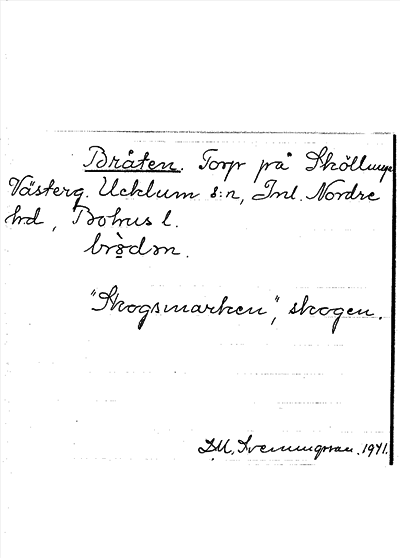 Bråten. Torp på Sköllunga
Västerg. Ucklum s:n, Inl. Nordre
hd, Bohus l.
brò̤dən.
"Skogsmarken", skogen.
D.U. Sveningsson. 1941.